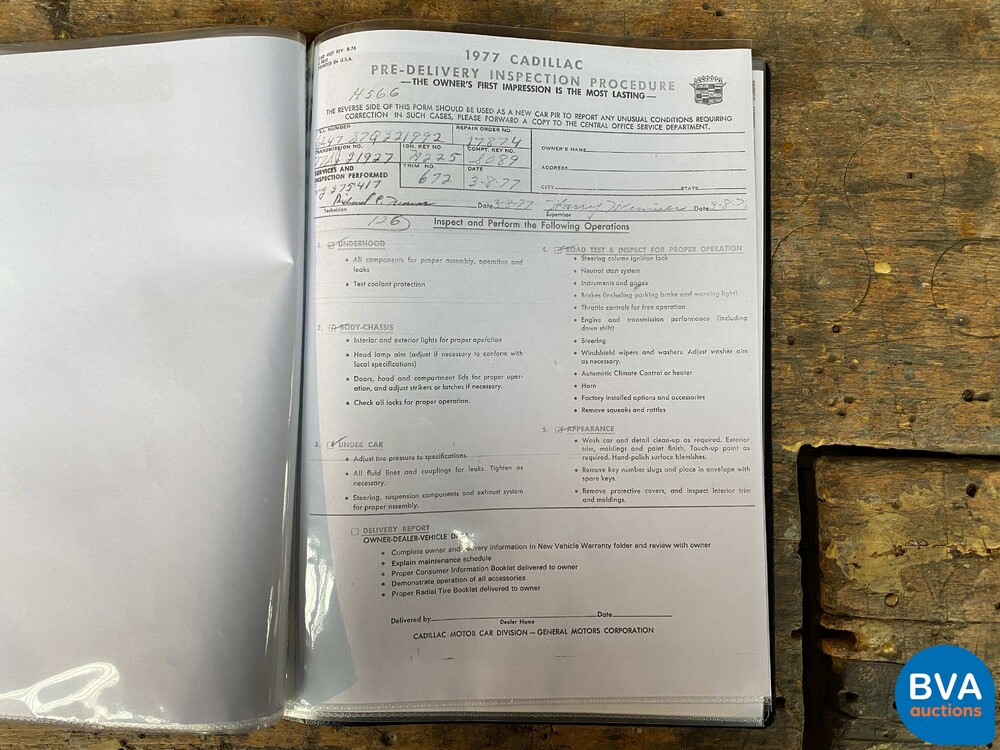 REV. 8-76
PRINTED IN U.S.A.
1977 CADILLAC
PRE-DELIVERY INSPECTION PROCEDURE
—THE OWNER'S FIRST IMPRESSION IS THE MOST LASTING—
H566
THE REVERSE SIDE OF THIS FORM SHOULD BE USED AS A NEW CAR PIR TO REPORT ANY UNUSUAL CONDITIONS REQUIRING
CORRECTION IN SUCH CASES, PLEASE FORWARD A COPY TO THE CENTRAL OFFICE SERVICE DEPARTMENT.
NUMBER REPAIR ORDER NO.
17874 OWNER'S NAME
TRANSMISSION NO. IGN. KEY NO COMPT. KEY NO.
21927 8089
ADDRESS
SERVICES AND TRIM NO. DATE
INSPECTION PERFORMED 672 3-8-77
275417 CITY STATE
Richard Date 3-8-77 Harry Date
Technician Supervisor
126 Inspect and Perform the Following Operations
1. UNDERHOOD
• All components for proper assembly, operation and
leaks
• Test coolant protection
2. BODY-CHASSIS
• Interior and exterior lights for proper operation
• Head lamp aim (adjust if necessary to conform with
local specifications)
• Doors, hood and compartment lids for proper oper-
ation, and adjust strikers or latches if necessary.
• Check all locks for proper operation.
3. UNDER CAR
• Adjust tire pressure to specifications.
• All fluid lines and couplings for leaks. Tighten as
necessary.
• Steering, suspension components and exhaust system
for proper assembly.
4. ROAD TEST & INSPECT FOR PROPER OPERATION
• Steering column ignition lock
• Neutral start system
• Instruments and gages
• Brakes (including parking brake and warning light)
• Throttle controls for free operation
• Engine and transmission performance (including
down shift)
• Steering
• Windshield wipers and washers. Adjust washer aim
as necessary.
• Automatic Climate Control or heater
• Horn
• Factory installed options and accessories
• Remove squeaks and rattles
5. APPEARANCE
• Wash car and detail clean-up as required. Exterior
trim, moldings and paint finish. Touch-up paint as
required. Hand-polish surface blemishes.
• Remove key number slugs and place in envelope with
spare keys.
• Remove protective covers, and inspect interior trim
and moldings.
DELIVERY REPORT
OWNER-DEALER-VEHICLE
• Complete owner and delivery information in New Vehicle Warranty folder and review with owner
• Explain maintenance schedule
• Proper Consumer Information Booklet delivered to owner
• Demonstrate operation of all accessories
• Proper Radial Tire Booklet delivered to owner
Delivered by Date
Dealer Name
CADILLAC MOTOR CAR DIVISION — GENERAL MOTORS CORPORATION
BVA
auctions